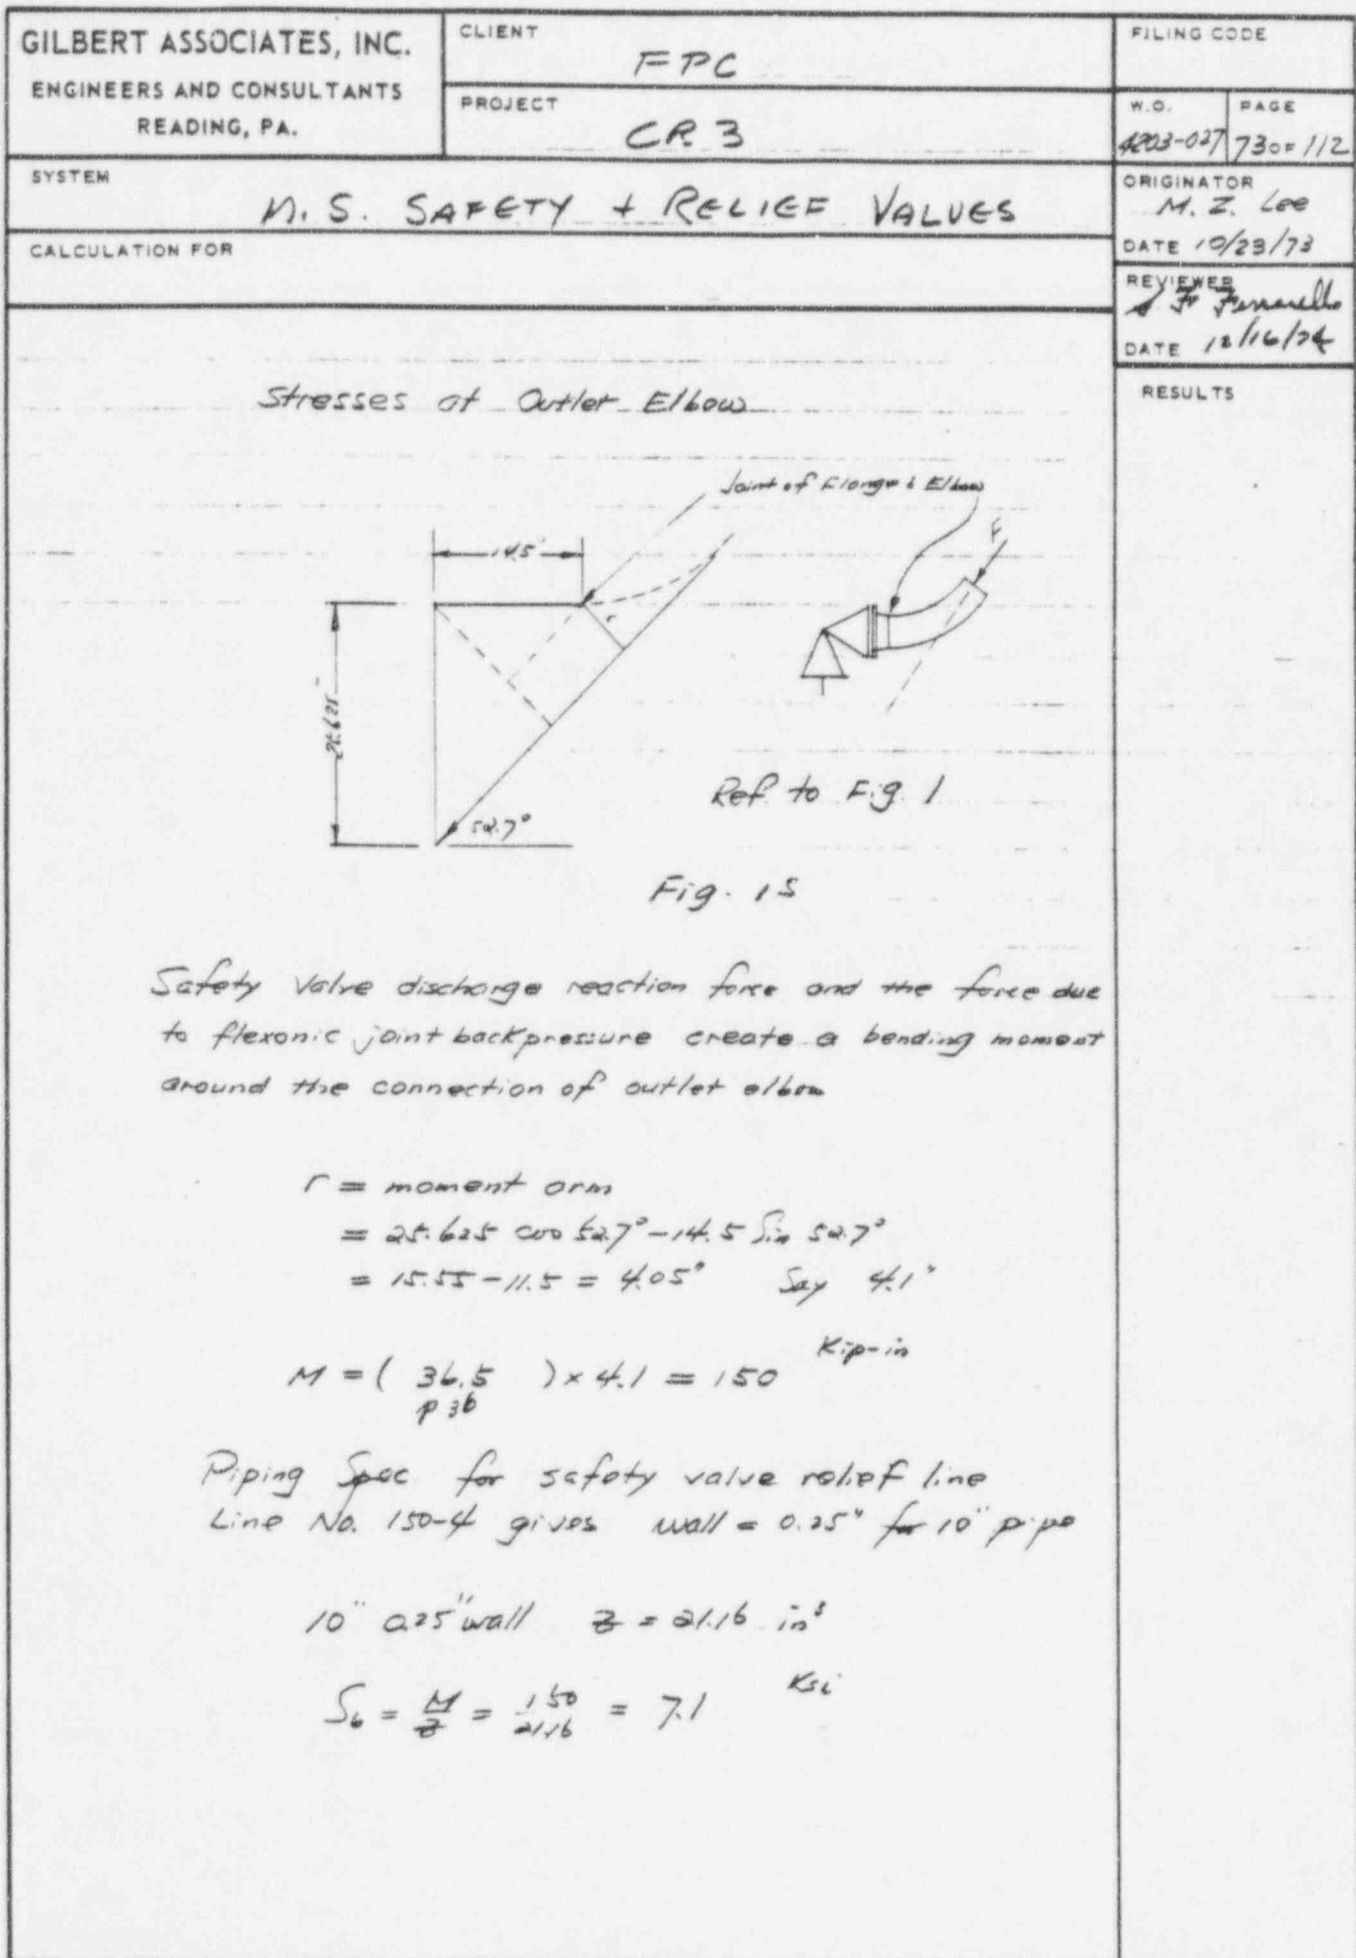 GILBERT ASSOCIATES, INC.
ENGINEERS AND CONSULTANTS
READING, PA.
CLIENT
FPC
PROJECT
CR 3
FILING CODE
W.O.
4203-027
PAGE
73 OF 112
SYSTEM
M.S. SAFETY + RELIEF VALUES
ORIGINATOR
M. Z. Lee
DATE 10/23/73
CALCULATION FOR
REVIEWER
DATE 12/16/74
RESULTS
Stresses at Outlet Elbow
Joint of Flange & Elbow
14.5"
F
r
25.625"
52.7°
Ref. to Fig. 1
Fig. 15
Safety Valve discharge reaction force and the force due
to flexonic joint backpressure create a bending moment
around the connection of outlet elbow
r = moment arm
= 25.625 cos 52.7° - 14.5 Sin 52.7°
= 15.55 - 11.5 = 4.05" Say 4.1"
M = ( 36.5 ) × 4.1 = 150 Kip-in
p 36
Piping Spec for safety valve relief line
Line No. 150-4 gives wall = 0.25" for 10" pipe
10" 0.25" wall Z = 21.16 in³
S_b = M/Z = 150/21.16 = 7.1 Ksi